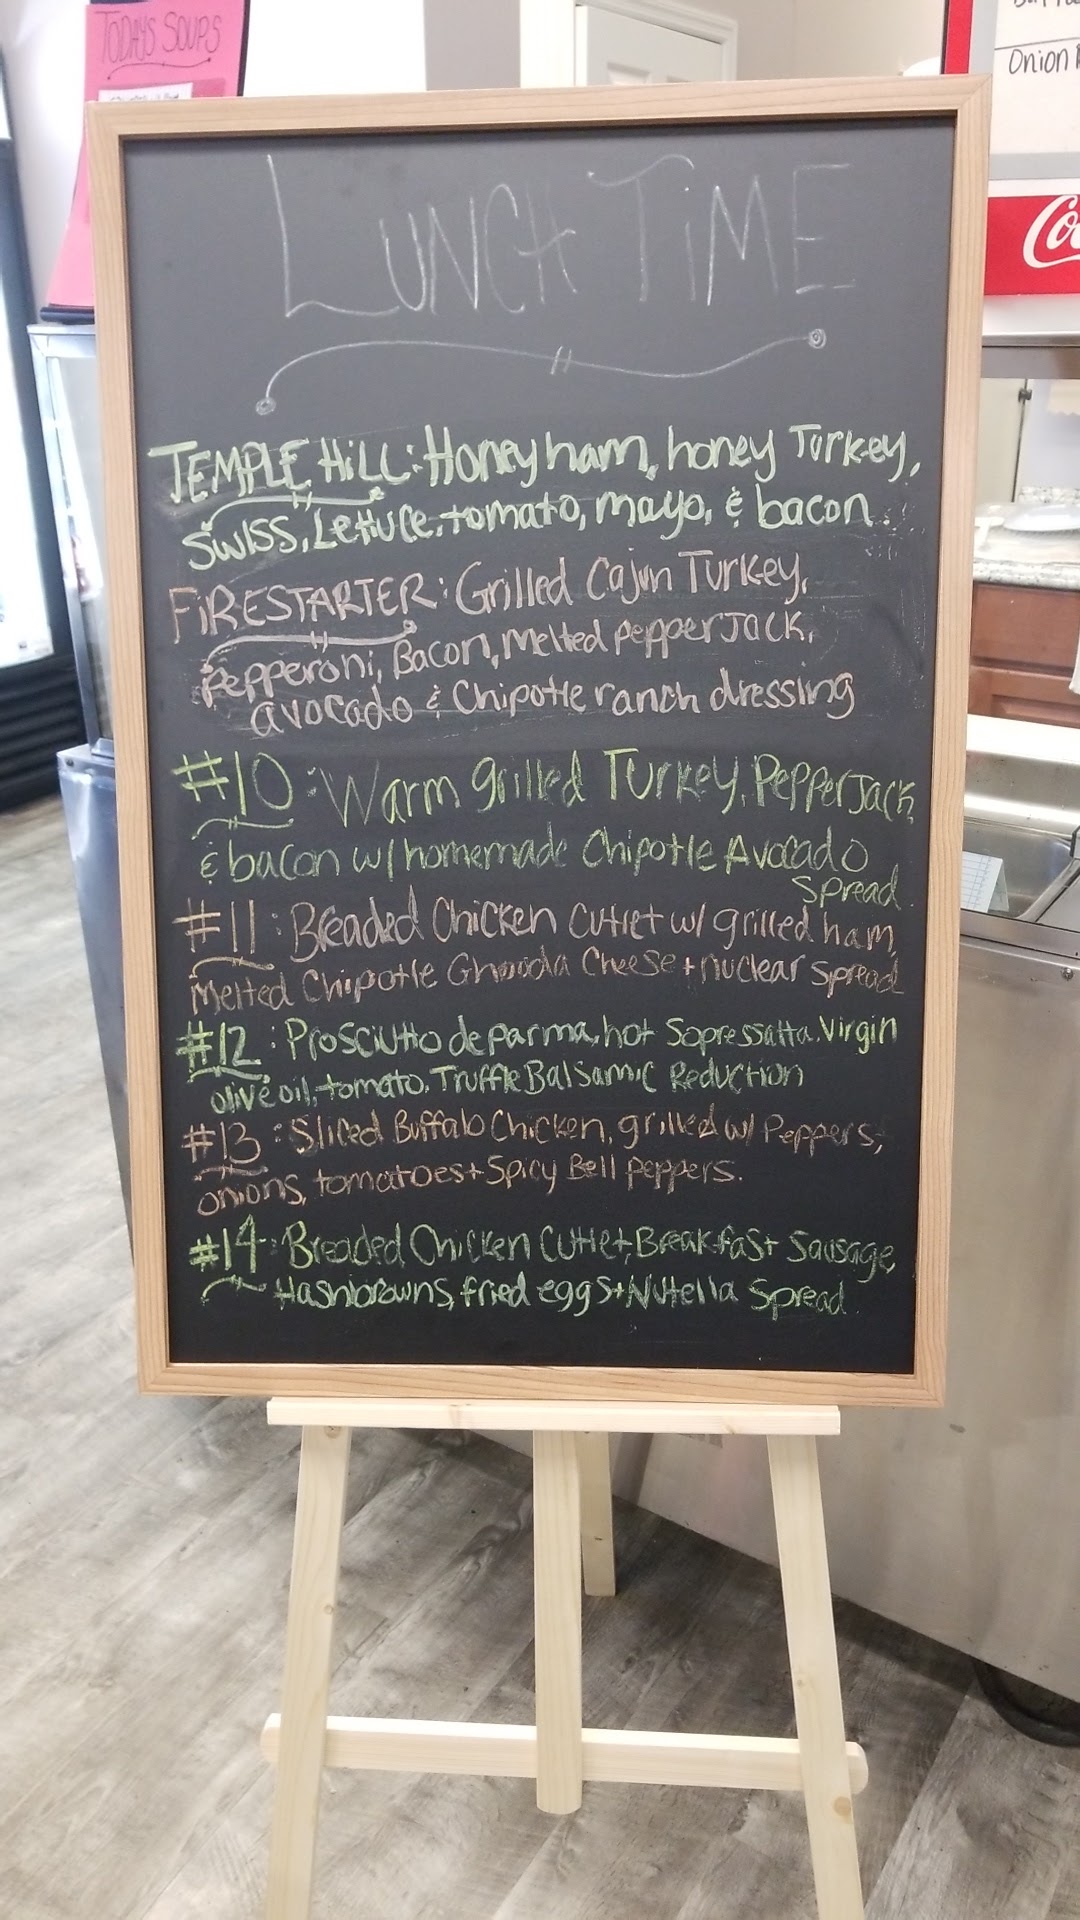 TODAYS SOUPS
Onion
Co
LUNCH TIME
TEMPLE HILL: Honey ham, honey Turkey,
Swiss, Lettuce, tomato, mayo, & bacon.
FIRESTARTER: Grilled Cajun Turkey,
Pepperoni, Bacon, Melted PepperJack,
avocado & Chipotle ranch dressing
#10: Warm grilled Turkey, PepperJack,
& bacon w/ homemade Chipotle Avocado
Spread.
#11: Breaded Chicken Cutlet w/ grilled ham,
Melted Chipotle Ghouda Cheese + nuclear Spread
#12: Prosciutto de parma, hot Sopressatta, Virgin
olive oil, tomato, Truffle Balsamic Reduction
#13: Sliced Buffalo Chicken, grilled w/ Peppers,
onions, tomatoes + Spicy Bell Peppers.
#14: Breaded Chicken Cutlet, Breakfast Sausage,
Hashbrowns, fried eggs + Nutella Spread.